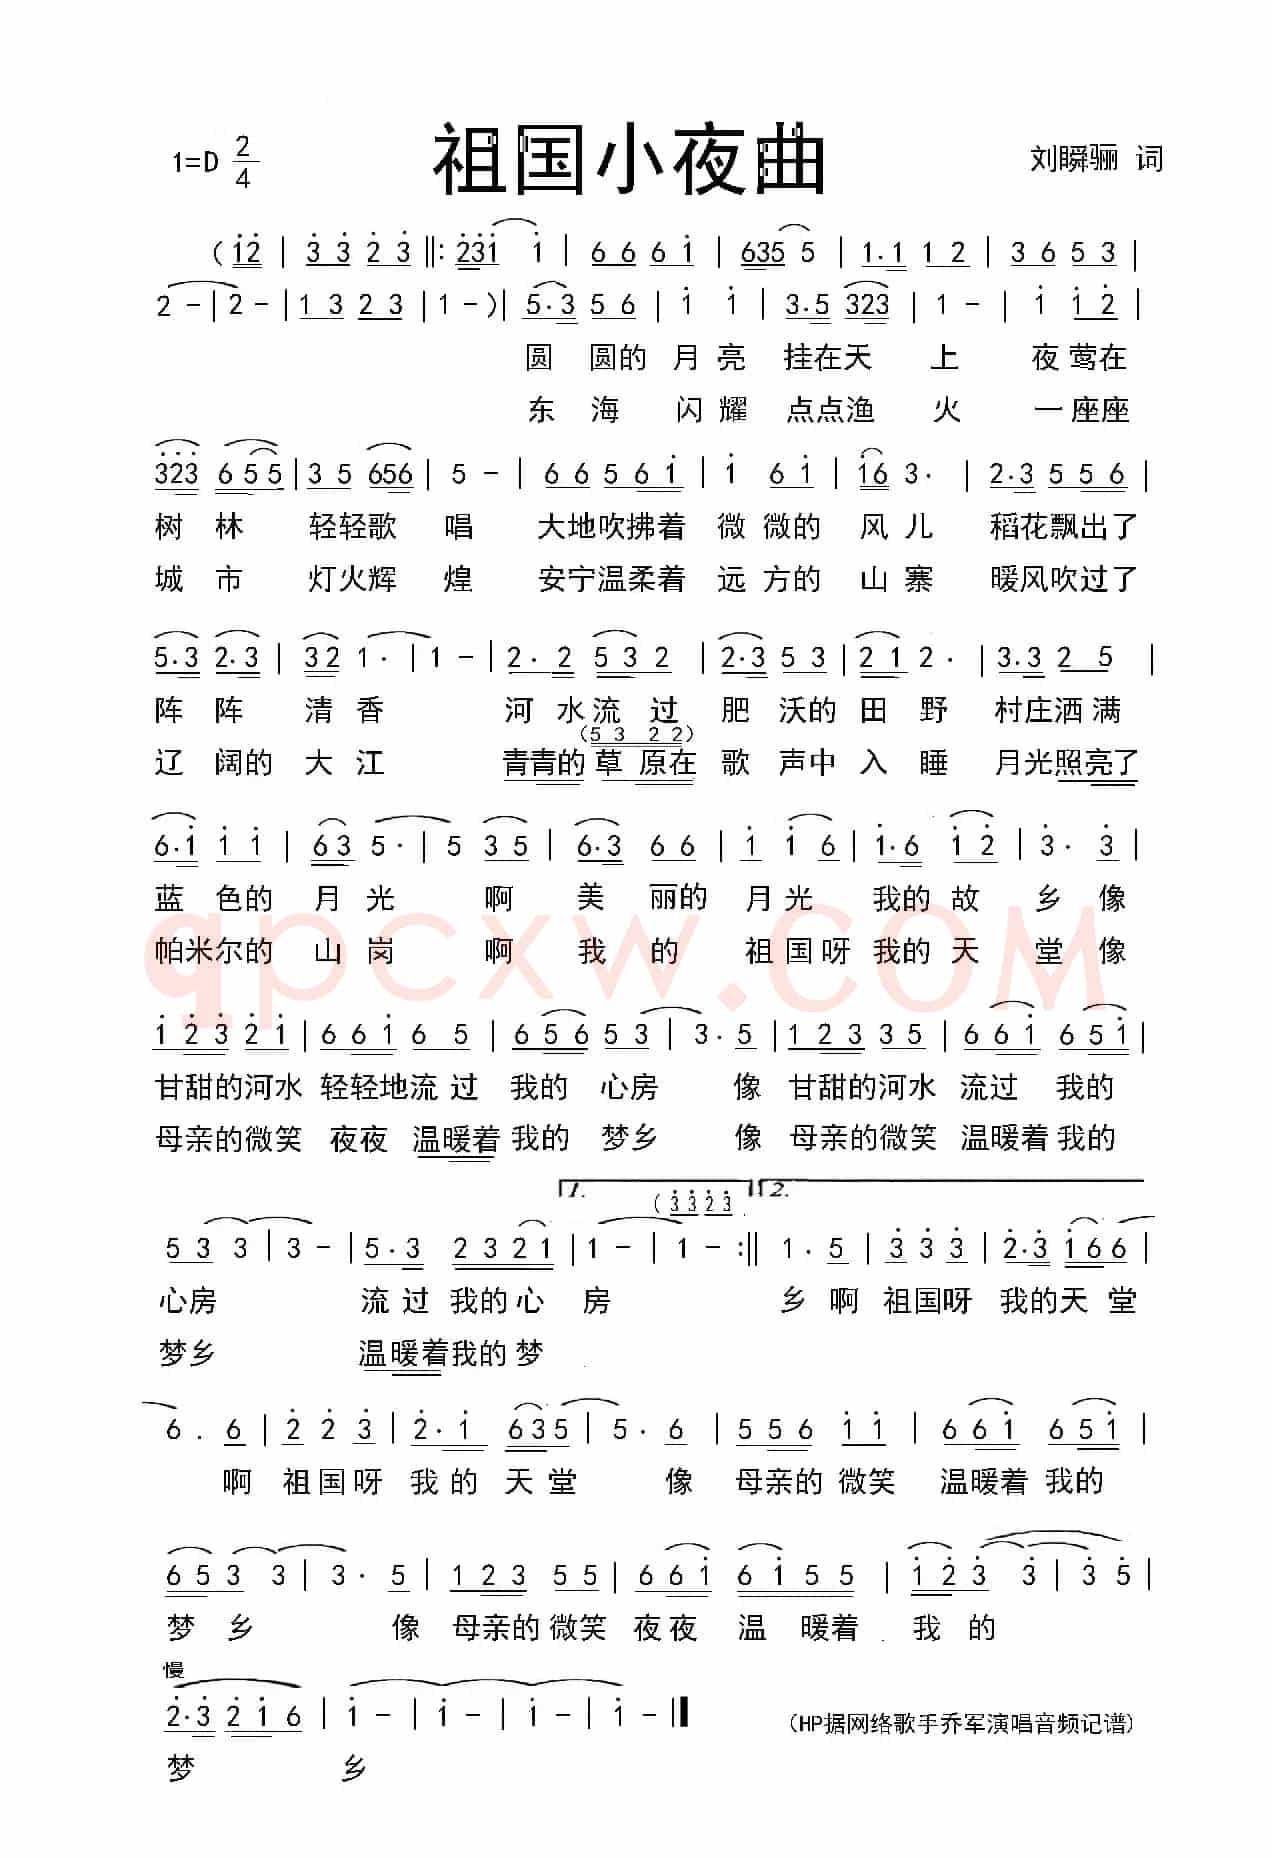 祖国小夜曲
1=D 2/4
刘瞬骊 词
(12 | 3 3 2 3 ‖: 231 1 | 6 6 6 1 | 635 5 | 1·1 1 2 | 3 6 5 3 |
2 - | 2 - | 1 3 2 3 | 1 - ) | 5·3 5 6 | 1 1 | 3·5 323 | 1 - | 1 1 2 |
圆 圆的 月 亮 挂在天 上 夜 莺在
东 海 闪 耀 点点渔 火 一 座座
323 6 5 5 | 3 5 656 | 5 - | 6 6 5 6 1 | 1 6 1 | 16 3· | 2·3 5 5 6 |
树 林 轻轻歌 唱 大地吹拂着 微 微的 风 儿 稻花飘出了
城 市 灯火辉 煌 安宁温柔着 远 方的 山 寨 暖风吹过了
5·3 2·3 | 32 1· | 1 - | 2· 2 5 3 2 | 2·3 5 3 | 2 1 2· | 3·3 2 5 |
阵 阵 清 香 河 水流 过 肥 沃的 田 野 村庄洒 满
(5 3 2 2)
辽 阔的 大 江 青青的 草 原在 歌 声中 入 睡 月光照亮了
6·1 1 1 | 6 3 5· | 5 3 5 | 6·3 6 6 | 1 1 6 | 1·6 1 2 | 3· 3 |
蓝 色的 月 光 啊 美 丽的 月 光 我的 故 乡 像
帕米尔的 山 岗 啊 我 的 祖国呀 我的 天 堂 像
qpcxw.COM
1 2 3 2 1 | 6 6 1 6 5 | 6 5 6 5 3 | 3· 5 | 1 2 3 3 5 | 6 6 1 6 5 1 |
甘甜的河水 轻轻地流 过 我的 心房 像 甘甜的河水 流过 我的
母亲的微笑 夜夜 温暖着 我的 梦乡 像 母亲的微笑 温暖着 我的
1. (3 3 2 3 2.
5 3 3 | 3 - | 5·3 2 3 2 1 | 1 - | 1 - :‖ 1· 5 | 3 3 3 | 2·3 1 6 6 |
心房 流 过 我的 心 房 乡 啊 祖国呀 我的天 堂
梦乡 温暖着我的 梦
6· 6 | 2 2 3 | 2· 1 6 3 5 | 5· 6 | 5 5 6 1 1 | 6 6 1 6 5 1 |
啊 祖国呀 我 的 天 堂 像 母亲的 微笑 温暖着 我的
6 5 3 3 | 3· 5 | 1 2 3 5 5 | 6 6 1 6 1 5 5 | 1 2 3 3 | 3 5 |
梦 乡 像 母亲的 微笑 夜夜 温 暖着 我 的
慢
2·3 2 1 6 | 1 - | 1 - | 1 - | 1 - ‖
(HP据网络歌手乔军演唱音频记谱)
梦 乡